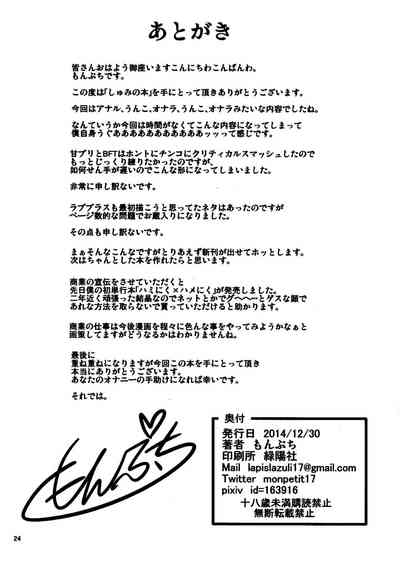 あとがき
皆さんおはよう御座いますこんにちわこんばんわ。
もんぷちです。
この度は「しゅみの本」を手にとって頂きありがとうございます。
今回はアナル、うんこ、オナラ、うんこ、オナラみたいな内容でしたね。
なんていうか今回は時間がなくてこんな内容になってしまって
僕自身うぐああああああああああッッって感じです。
甘ブリとBFTはホントにチンコにクリティカルスマッシュしたので
もっとじっくり練りたかったのですが、
如何せん手が遅いのでこんな形になってしまいました。
非常に申し訳ないです。
ラブプラスも最初描こうと思ってたネタはあったのですが
ページ数的な問題でお蔵入りになりました。
その点も申し訳ないです。
まぁそんなこんなですがとりあえず新刊が出せてホッとします。
次はちゃんとした本を作れたらと思います。
商業の宣伝をさせていただくと
先日僕の初単行本「ハミにく×ハメにく」が発売しました。
二年近く頑張った結晶なのでネットとかでグヘヘーとゲスな顔で
あれな方法を取らないで買っていただけると助かります。
商業の仕事は今後漫画を程々に色んな事をやってみようかなぁと
画策してますがどうなるかはわかりませんね。
最後に
重ね重ねになりますが今回この本を手にとって頂き
本当にありがとうございます。
あなたのオナニーの手助けになれば幸いです。
それでは。
もんぷち
奥付
発行日 2014/12/30
著者 もんぷち
印刷所 緑陽社
Mail lapislazuli17@gmail.com
Twitter monpetit17
pixiv id=163916
十八歳未満購読禁止
無断転載禁止
24